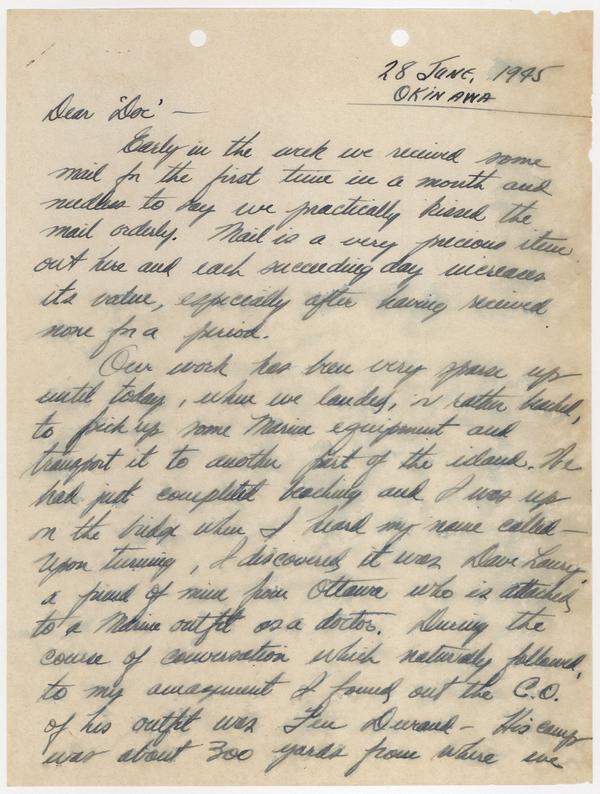 28 June, 1945
OKINAWA
Dear "Doc" —
Early in the week we received some
mail for the first time in a month and
needless to say we practically kissed the
mail orderly. Mail is a very precious item
out here and each succeeding day increases
its value, especially after having received
none for a period.
Our work has been very sparse up
until today, when we landed, or rather beached,
to pick up some Marine equipment and
transport it to another part of the island. We
had just completed beaching and I was up
on the bridge when I heard my name called —
Upon turning, I discovered it was Dave
a friend of mine from Ottawa who is attached
to a Marine outfit as a doctor. During the
course of conversation which naturally followed,
to my amazement I found out the C.O.
of his outfit was Durand — His camp
was about 300 yards from where we